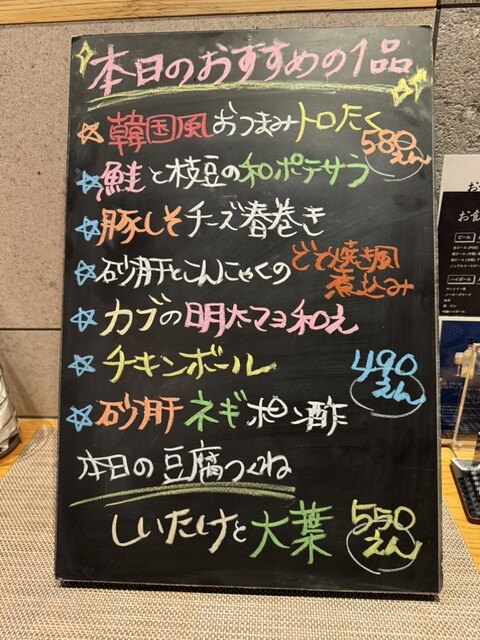 本日のおすすめの1品
☆韓国風おつまみトロたく
580えん
☆鮭と枝豆の和ポテサラ
☆豚しそチーズ春巻き
☆砂肝とこんにゃくのどて焼き風煮込み
☆カブの明太マヨ和え
☆チキンボール
490えん
☆砂肝ネギポン酢
本日の豆腐つくね
しいたけと大葉
550えん
お食
ビール
ハイボール